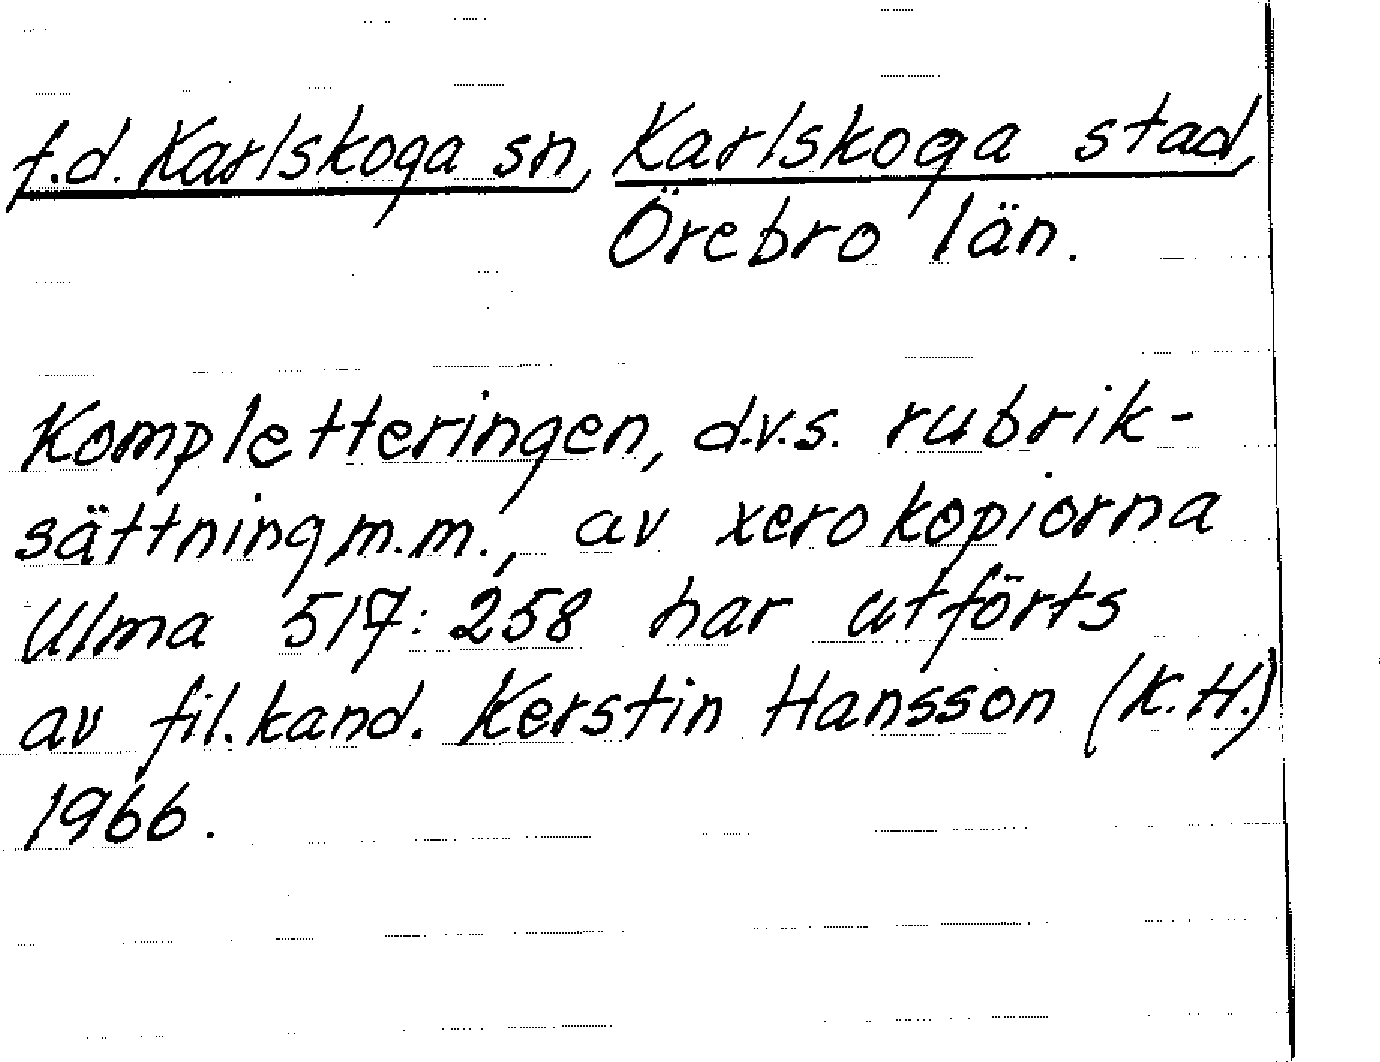 f.d. Karlskoga sn, Karlskoga stad,
Örebro län.
Kompletteringen, d.v.s. rubrik-
sättning m.m., av xerokopiorna
Ulma 517:258 har utförts
av fil.kand. Kerstin Hansson (K.H.)
1966.